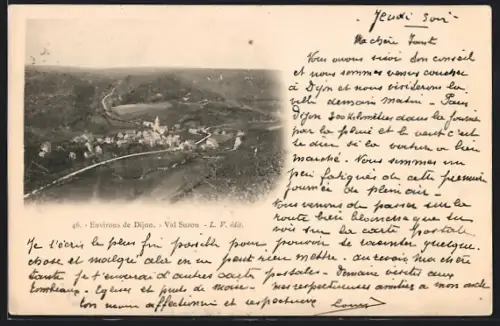 Jeudi soir
Ma chère Tante
Nous avons suivi ton conseil
et nous sommes venus coucher
à Dijon et nous visiterons la
ville demain matin - Paris
Dijon 300 Kilomètres dans la journée
par la pluie et le vent c'est
te dire si la voiture a bien
marché. Nous sommes un
peu fatigués de cette première
journée de plein air -
Nous venons de passer sur la
route bien blanche que tu
vois sur la carte postale
46. - Environs de Dijon. - Val Suzon - L. V. édit.
Je t'écris le plus fin possible pour pouvoir te raconter quelque
chose et malgré cela on ne peut rien mettre. au revoir ma chère
tante je t'enverrai d'autres cartes postales - Demain visites aux
Tombeaux - Eglises et puits de moïse - mes respectueuses amitiés à mon oncle
Ton neveu affectionné et respectueux Louis